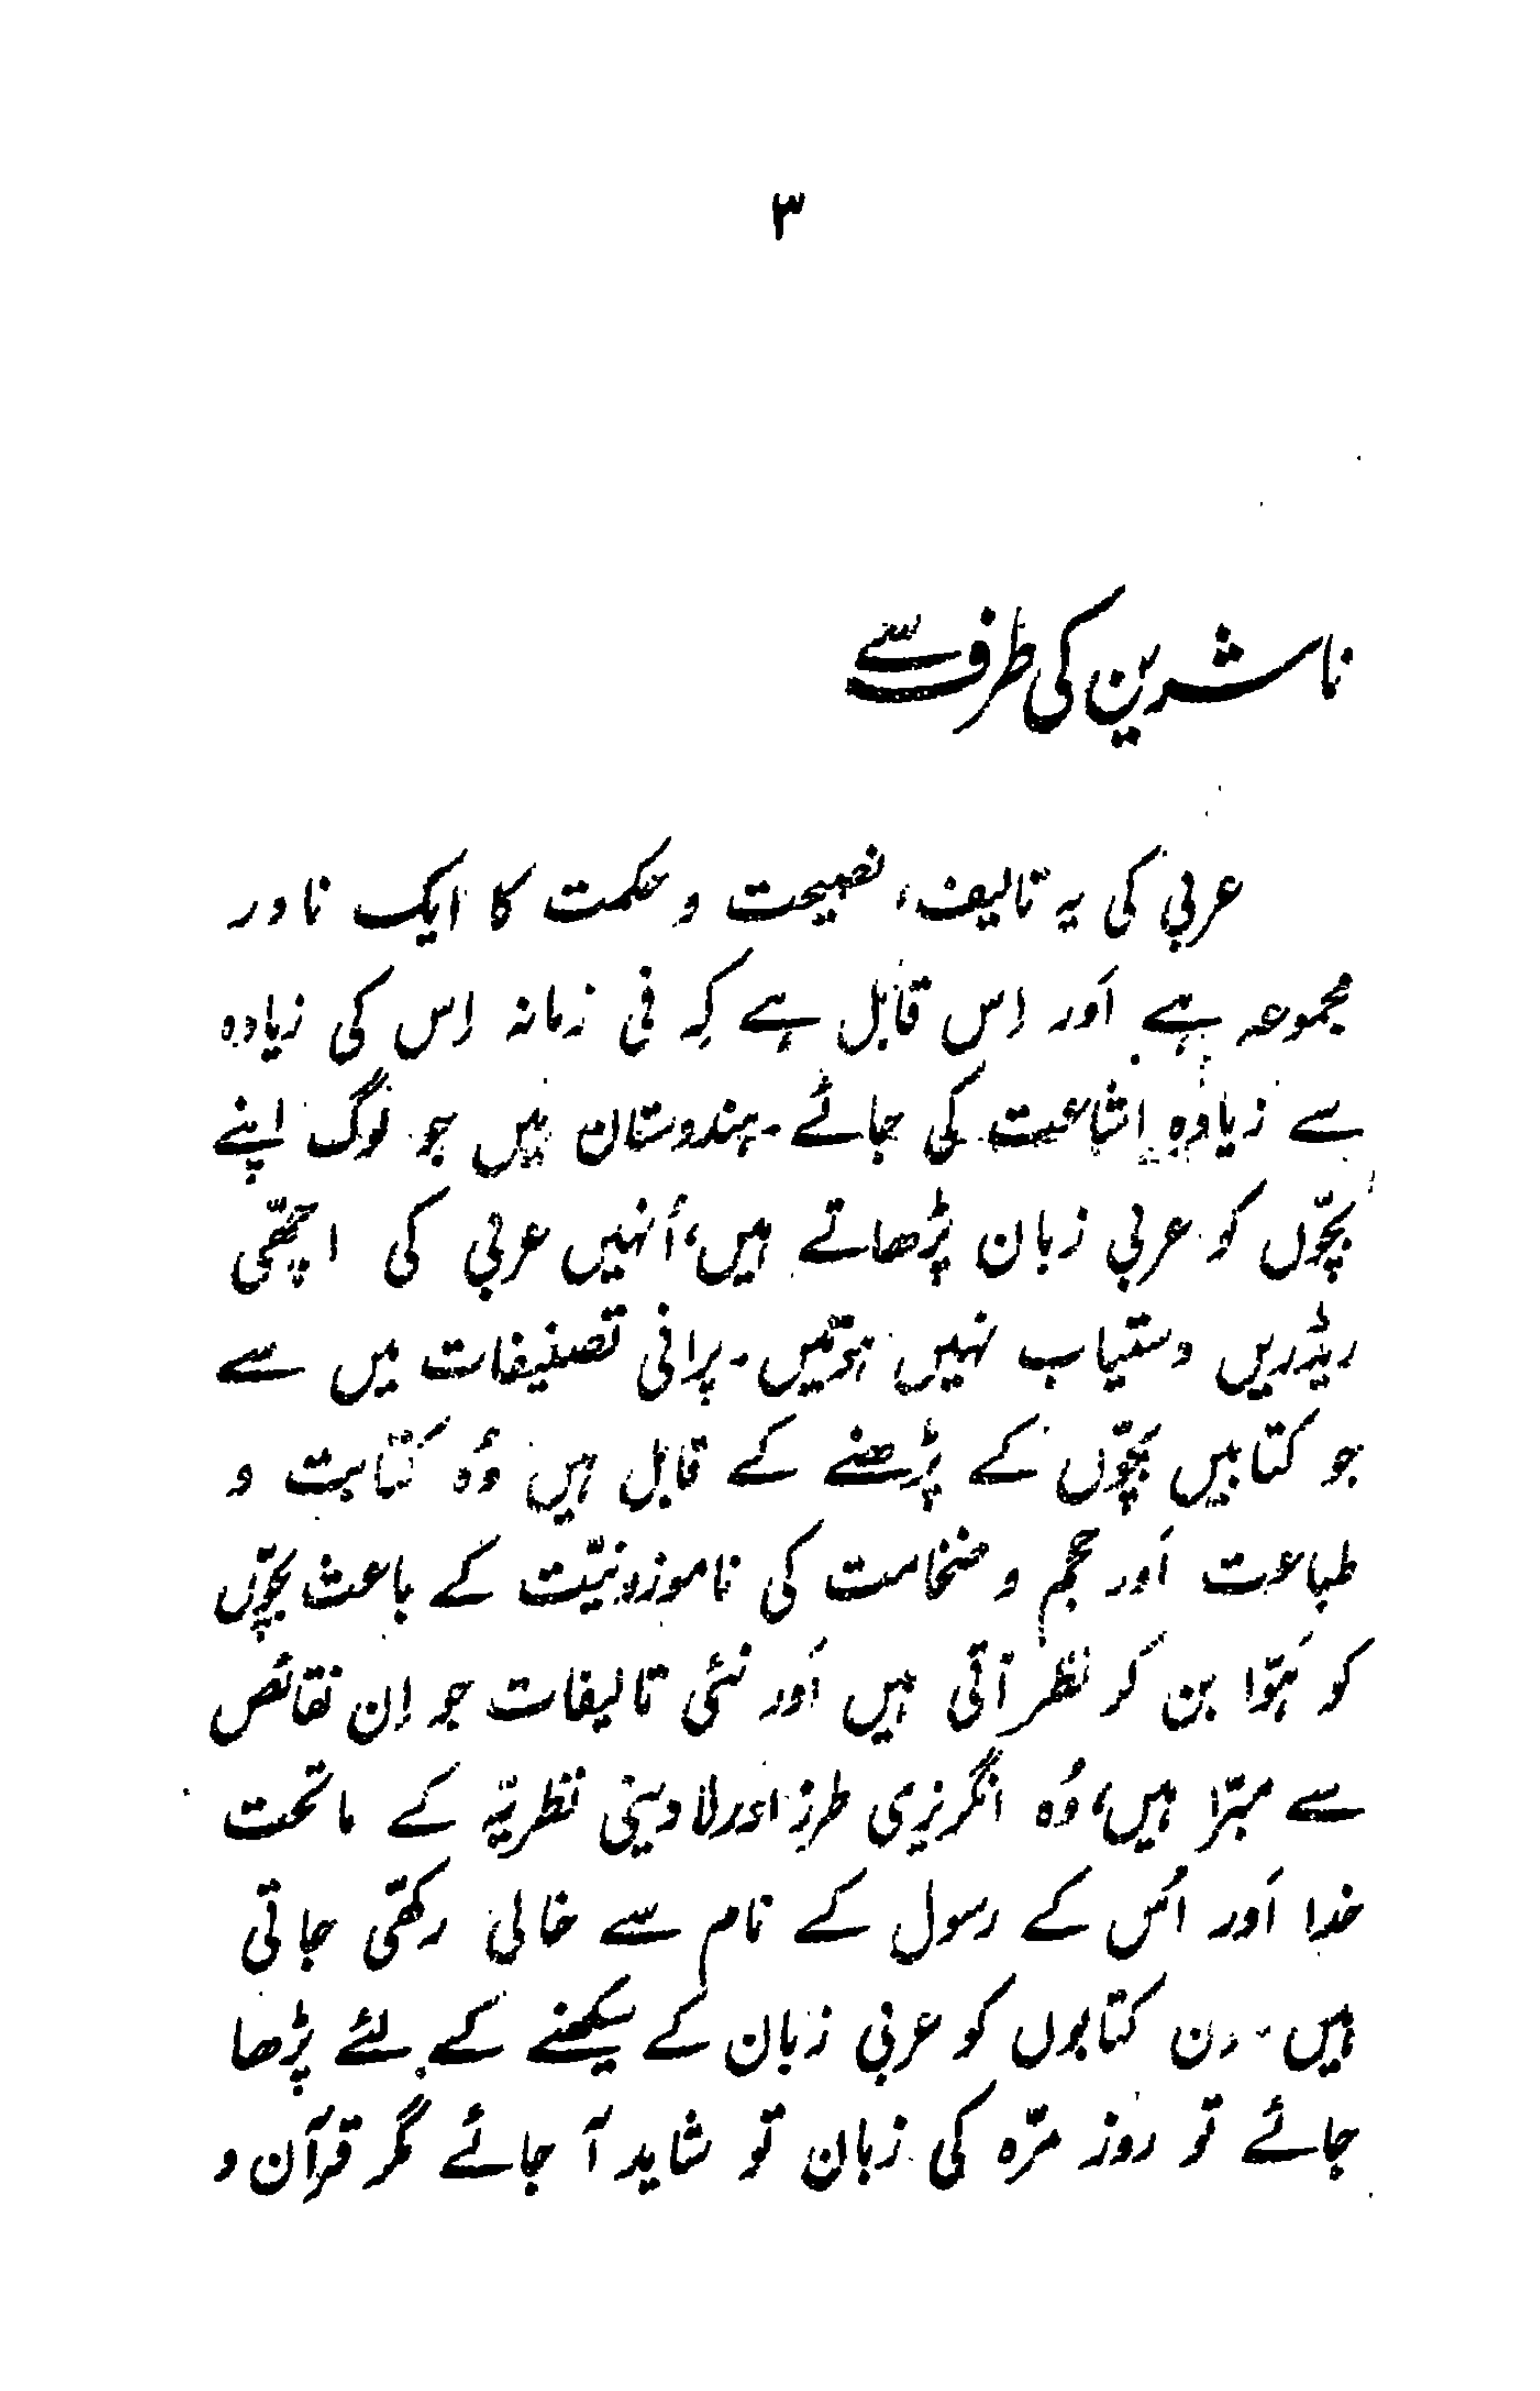 ۳
ناشرین کی طرف سے
عربی کی یہ تالیف، نصیحت و حکمت کا ایک نادر
مجموعہ ہے اَور اس قابل ہے کہ فی زمانہ اِس کی زیادہ
سے زیادہ اشاعت کی جائے۔ ہندوستان میں جو لوگ اپنے
بچّوں کو عربی زبان پڑھاتے ہیں، اُنہیں عربی کی اچھّی
ریڈریں دستیاب نہیں ہوتیں۔ پرانی تصنیفات میں سے
جو کتابیں بچّوں کے پڑھنے کے قابل ہیں وُہ کتابت و
طباعت اَور حجم و ضخامت کی ناموزونیّت کے باعث بچّوں
کو ہَوّا بن کر نظر آتی ہیں اَور نئی تالیفات جو اِن نقائص
سے مبرّا ہیں، وُہ انگریزی طرز اور لادینی نظریّہ کے ماتحت
خدا اَور اُس کے رسول کے نام سے خالی رکھّی جاتی
ہیں۔ اِن کتابوں کو عربی زبان کے سیکھنے کے لئے پڑھا
جائے تو روز مرّہ کی زبان تو شاید آ جائے مگر قرآن و